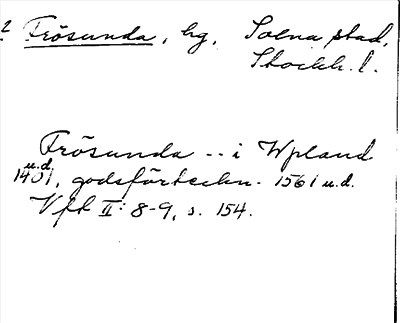 2 Frösunda, hg, Solna stad,
Stockh. l.
Frösunda -- i Wpland
u.d.
1401, godsförteckn. 1561 u.d.
Vfl II: 8-9, s. 154.